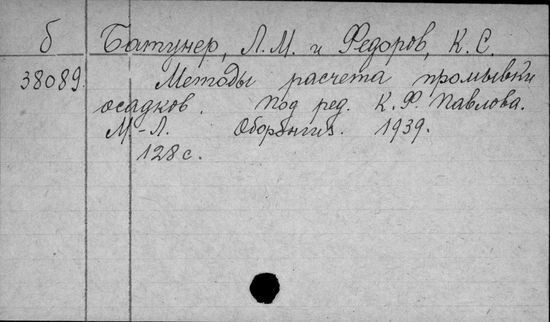 б Батунер, Л.М. и Федоров, К.С.
38089. Методы расчета промывки
осадков. Под ред. К.Ф. Павлова.
М.-Л. Оборонгиз. 1939.
128 с.